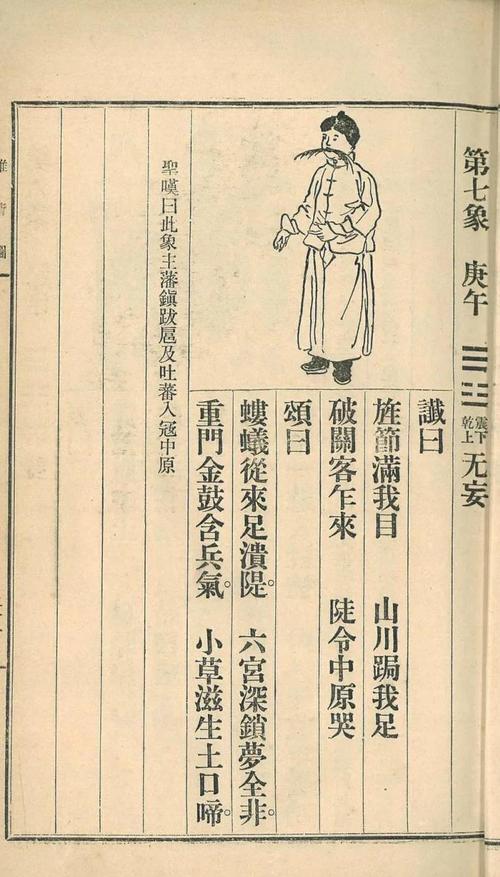 第七象 庚午 震下乾上 无妄
讖曰
旌節滿我目 山川跼我足
破關客乍來 陡令中原哭
頌曰
螻蟻從來足潰隄。 六宮深鎖夢全非。
重門金鼓含兵氣。 小草滋生土口啼。
聖嘆曰此象主藩鎮跋扈及吐蕃入寇中原